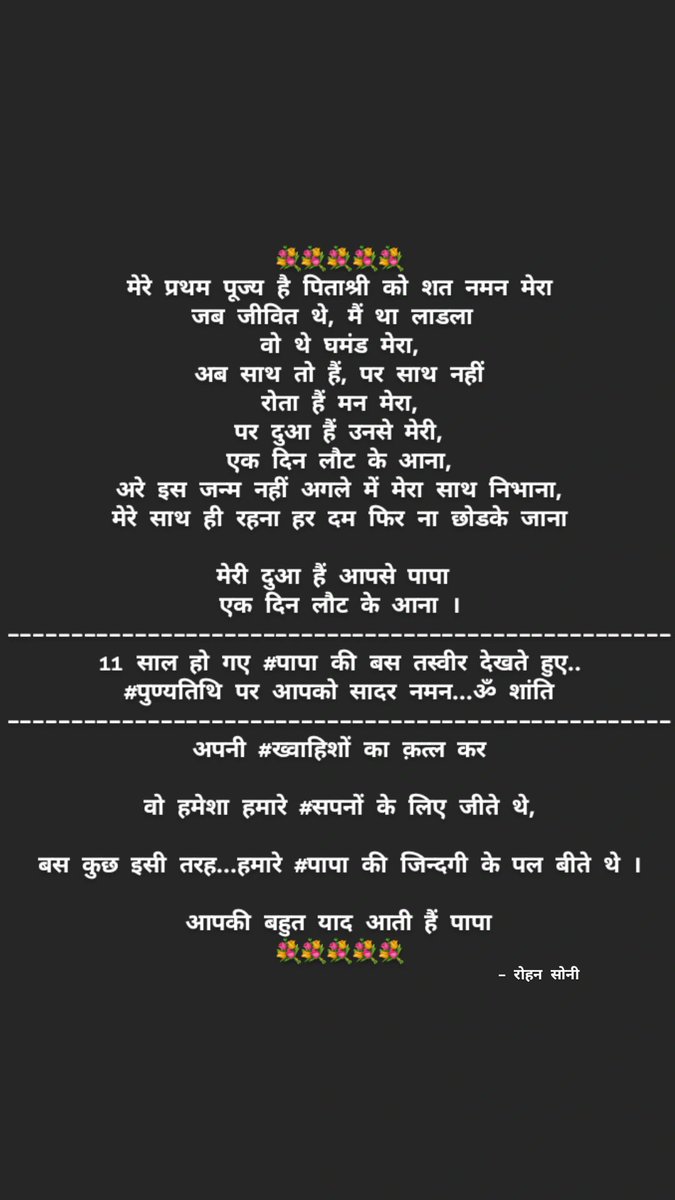 💐💐💐💐💐
मेरे प्रथम पूज्य है पिताश्री को शत नमन मेरा
जब जीवित थे, मैं था लाडला
वो थे घमंड मेरा,
अब साथ तो हैं, पर साथ नहीं
रोता हैं मन मेरा,
पर दुआ हैं उनसे मेरी,
एक दिन लौट के आना,
अरे इस जन्म नहीं अगले में मेरा साथ निभाना,
मेरे साथ ही रहना हर दम फिर ना छोडके जाना
मेरी दुआ हैं आपसे पापा
एक दिन लौट के आना ।
----------------------------------------------------
11 साल हो गए #पापा की बस तस्वीर देखते हुए..
#पुण्यतिथि पर आपको सादर नमन...ॐ शांति
----------------------------------------------------
अपनी #ख्वाहिशों का क़त्ल कर
वो हमेशा हमारे #सपनों के लिए जीते थे,
बस कुछ इसी तरह...हमारे #पापा की जिन्दगी के पल बीते थे ।
आपकी बहुत याद आती हैं पापा
💐💐💐💐💐
- रोहन सोनी